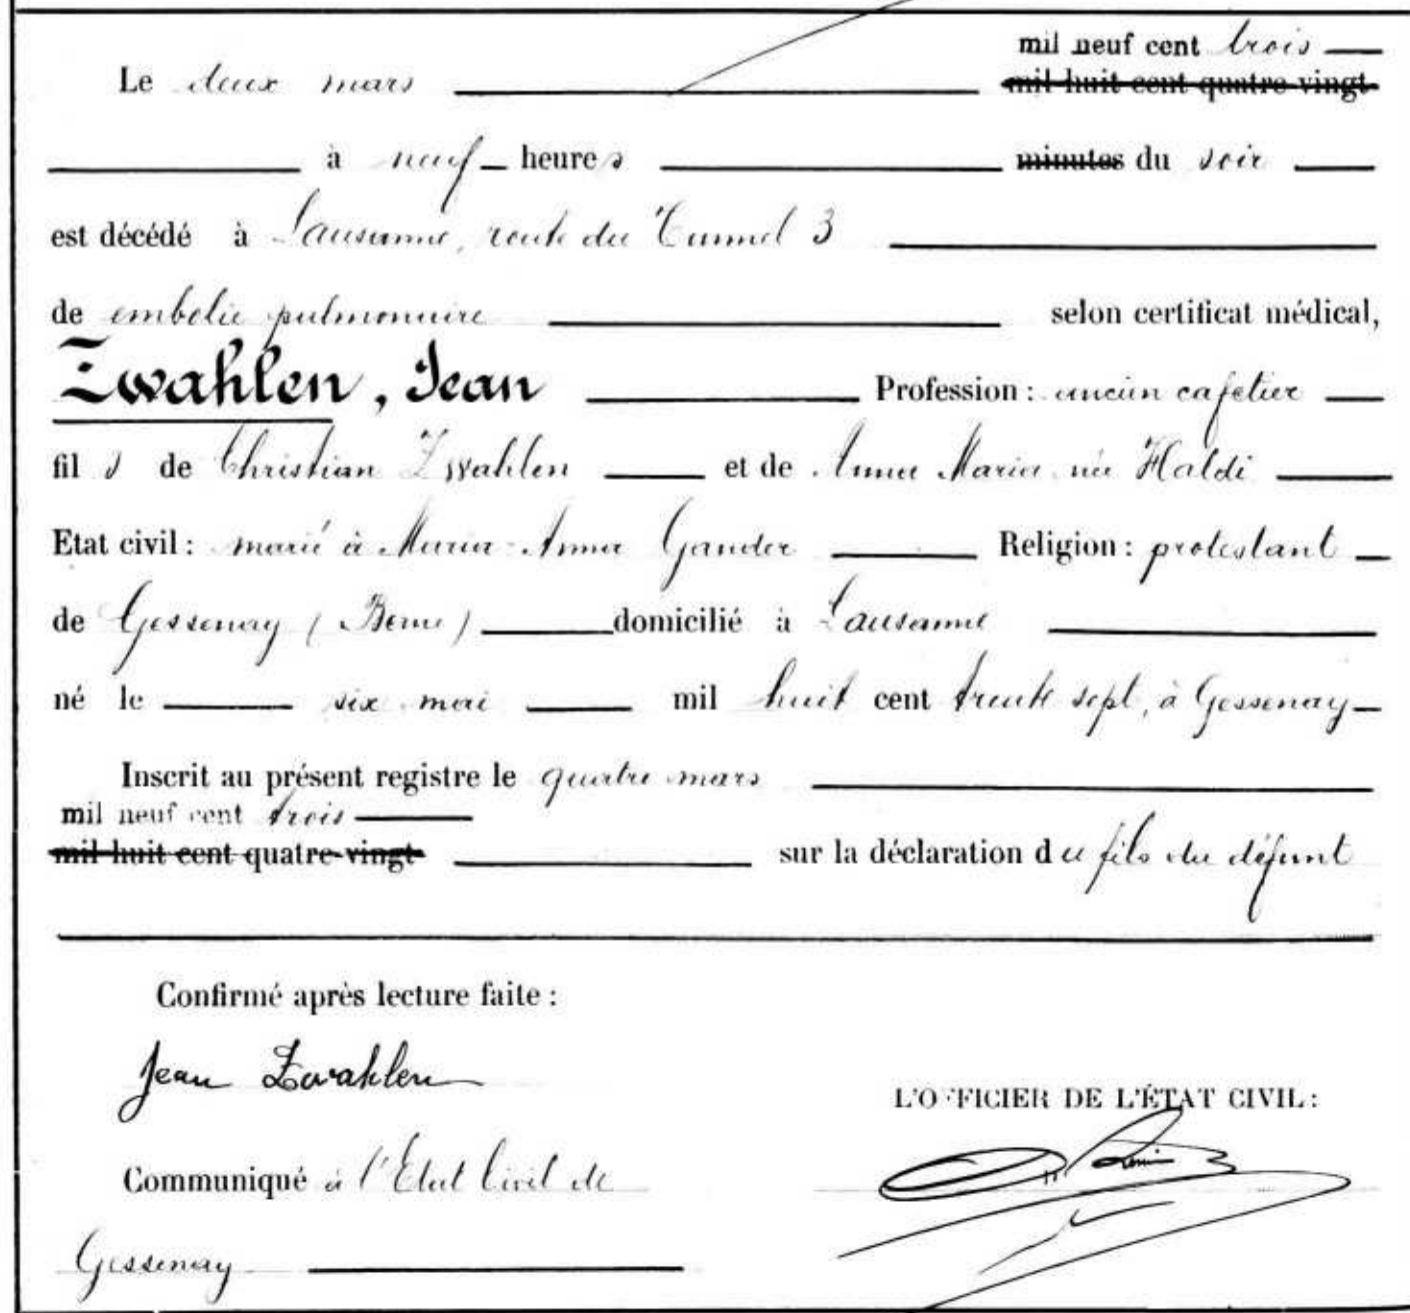 mil neuf cent trois
Le deux mars mil huit cent quatre-vingt
à neuf heures minutes du soir
est décédé à Lausanne, route du Tunnel 3
de embolie pulmonaire selon certificat médical,
Zwahlen, Jean Profession : ancien cafetier
fils de Christian Zwahlen et de Anna Maria née Haldi
Etat civil : marié à Maria-Anna Gander Religion : protestant
de Gessenay (Berne) domicilié à Lausanne
né le six mai mil huit cent trente sept, à Gessenay
Inscrit au présent registre le quatre mars
mil neuf cent trois
mil huit cent quatre-vingt sur la déclaration du fils du défunt
Confirmé après lecture faite :
Jean Zwahlen
L'OFFICIER DE L'ÉTAT CIVIL :
Communiqué à l'Etat Civil de
Gessenay